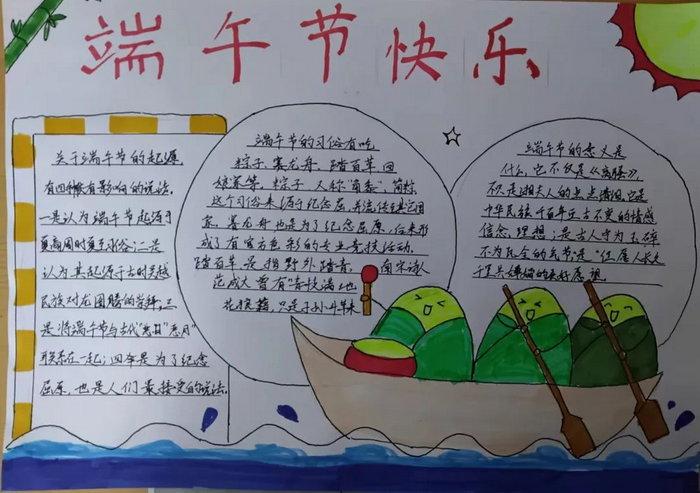 端午节快乐
关于端午节的起源
有四种最有影响的说法。
一是认为端午节起源于
夏商周时期夏至风俗;二是
认为其起源于古时吴越
民族对龙图腾的崇拜;三
是将端午节与古代"恶日"
联系在一起;四年是为了纪念
屈原,也是人们最接受的说法。
端午节的习俗有吃
粽子、赛龙舟、踏百草、回
娘家等。粽子,人称"角黍"、简粽
这个习俗来源于纪念屈
赛龙舟也是为了纪念屈原,后来形
成了有官方色彩的专业竞技活动。
踏百草是指野外踏青, 南宋诗人
范成大曾有"青枝满地
花狼籍,只是子孙斗草来
端午节的意义是
什么,它不仅是《离骚》
不只是湘夫人的点点清泪,它是
中华民族千百年亘古不变的情感
信念、理想;是古人宁为玉碎
不为瓦全的气节;是"但愿人长久
千里共婵娟的美好愿祝